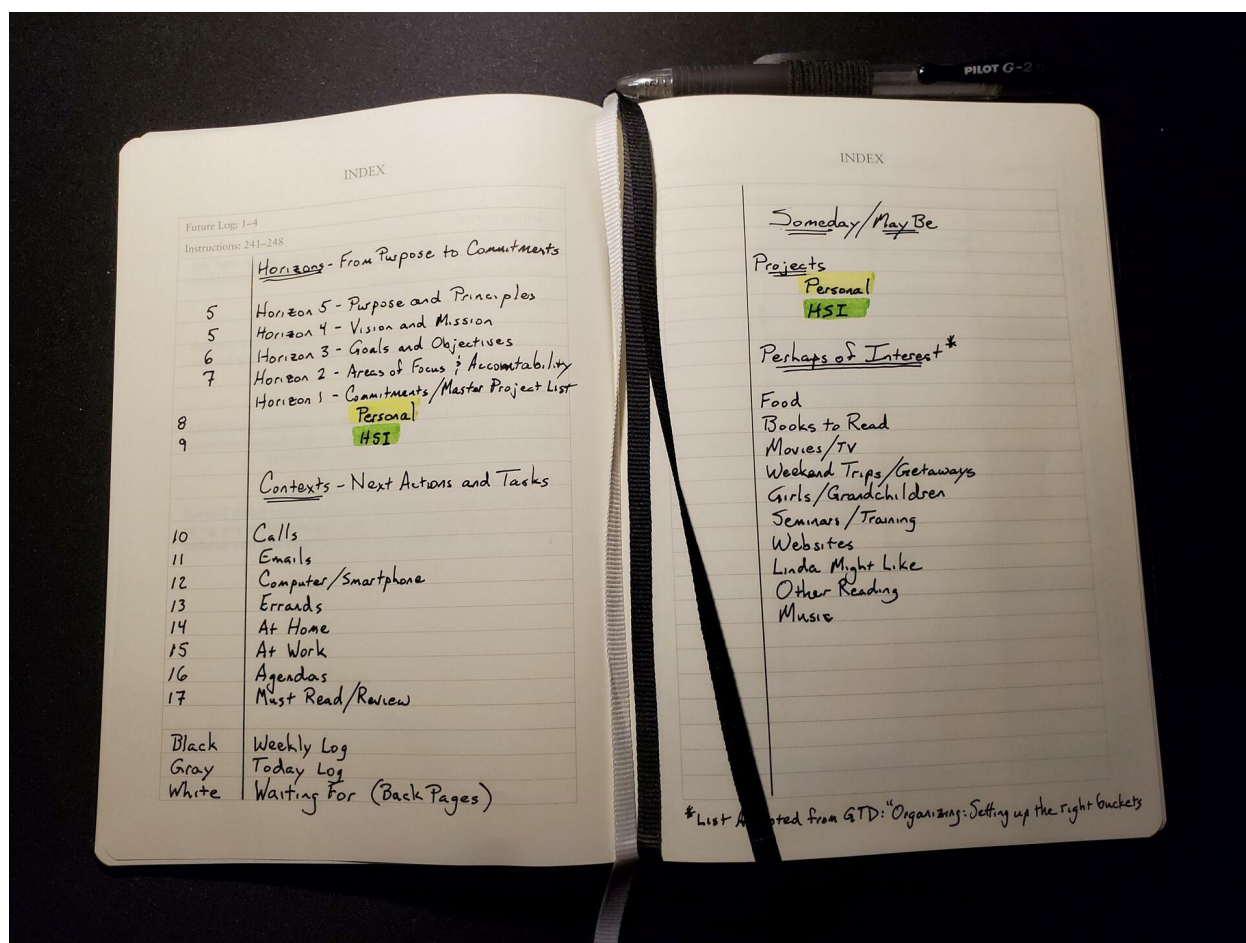 PILOT G-2
INDEX
Future Log: 1–4
Instructions: 241–248
Horizons - From Purpose to Commitments
5 Horizon 5 - Purpose and Principles
5 Horizon 4 - Vision and Mission
6 Horizon 3 - Goals and Objectives
7 Horizon 2 - Areas of Focus & Accountability
Horizon 1 - Commitments/Master Project List
8 Personal
9 HSI
Contexts - Next Actions and Tasks
10 Calls
11 Emails
12 Computer/Smartphone
13 Errands
14 At Home
15 At Work
16 Agendas
17 Must Read/Review
Black Weekly Log
Gray Today Log
White Waiting For (Back Pages)
INDEX
Someday/May Be
Projects
Personal
HSI
Perhaps of Interest*
Food
Books to Read
Movies/TV
Weekend Trips/Getaways
Girls/Grandchildren
Seminars/Training
Websites
Linda Might Like
Other Reading
Music
*List from GTD: "Organizing: Setting up the right buckets